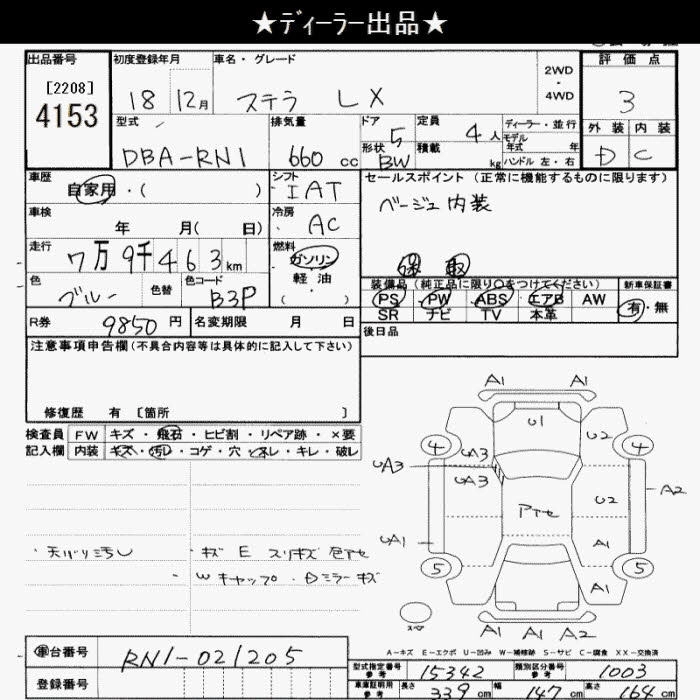 ★ディーラー出品★
出品番号
[2208]
4153
初度登録年月
18 12月
車名・グレード
ステラ LX
2WD
・
4WD
評価点
3
外装 内装
D C
型式
DBA-RN1
排気量
660 cc
ドア 5
形状 BW
定員 4人
積載 kg
ディーラー・並行
モデル
年式 年
ハンドル 左・右
車歴
自家用・( )
シフト
IAT
セールスポイント (正常に機能するものに限ります)
ベージュ内装
保 取
車検
年 月( 日)
冷房
AC
走行
7万9千463km
燃料
ガソリン
軽油
・
( )
色
ブルー
色替
色コード
B3P
装備品(純正品に限り○をつけてください)
PS PW ABS エアB AW
SR ナビ TV 本革
新車保証書
有・無
R券 9850円
名変期限 月 日
後日品
注意事項申告欄(不具合内容等は具体的に記入して下さい)
修復歴 有 [箇所 ]
検査員 FW キズ・飛石・ヒビ割・リペア跡・×要
記入欄 内装 キズ・汚レ・コゲ・穴・スレ・キレ・破レ
・天バリ汚レ
・キズ E スリキズ 色アセ
・Wキャップ ・Dミラーキズ
A1 A1
U1
4 U2 4
UA3 UA3
UA3
A2
アセ U2
UA1 A1
5 A1 5
A1 A1 A2
スペア
A-キズ E-エクボ U-凹み W-補修跡 S-サビ C-腐食 XX-交換済
車台番号
RN1-021205
登録番号
型式指定番号
参考
15342
類別区分番号
参考
1003
車庫証明用
参考
長さ 339 cm 幅 147 cm 高さ 164 cm